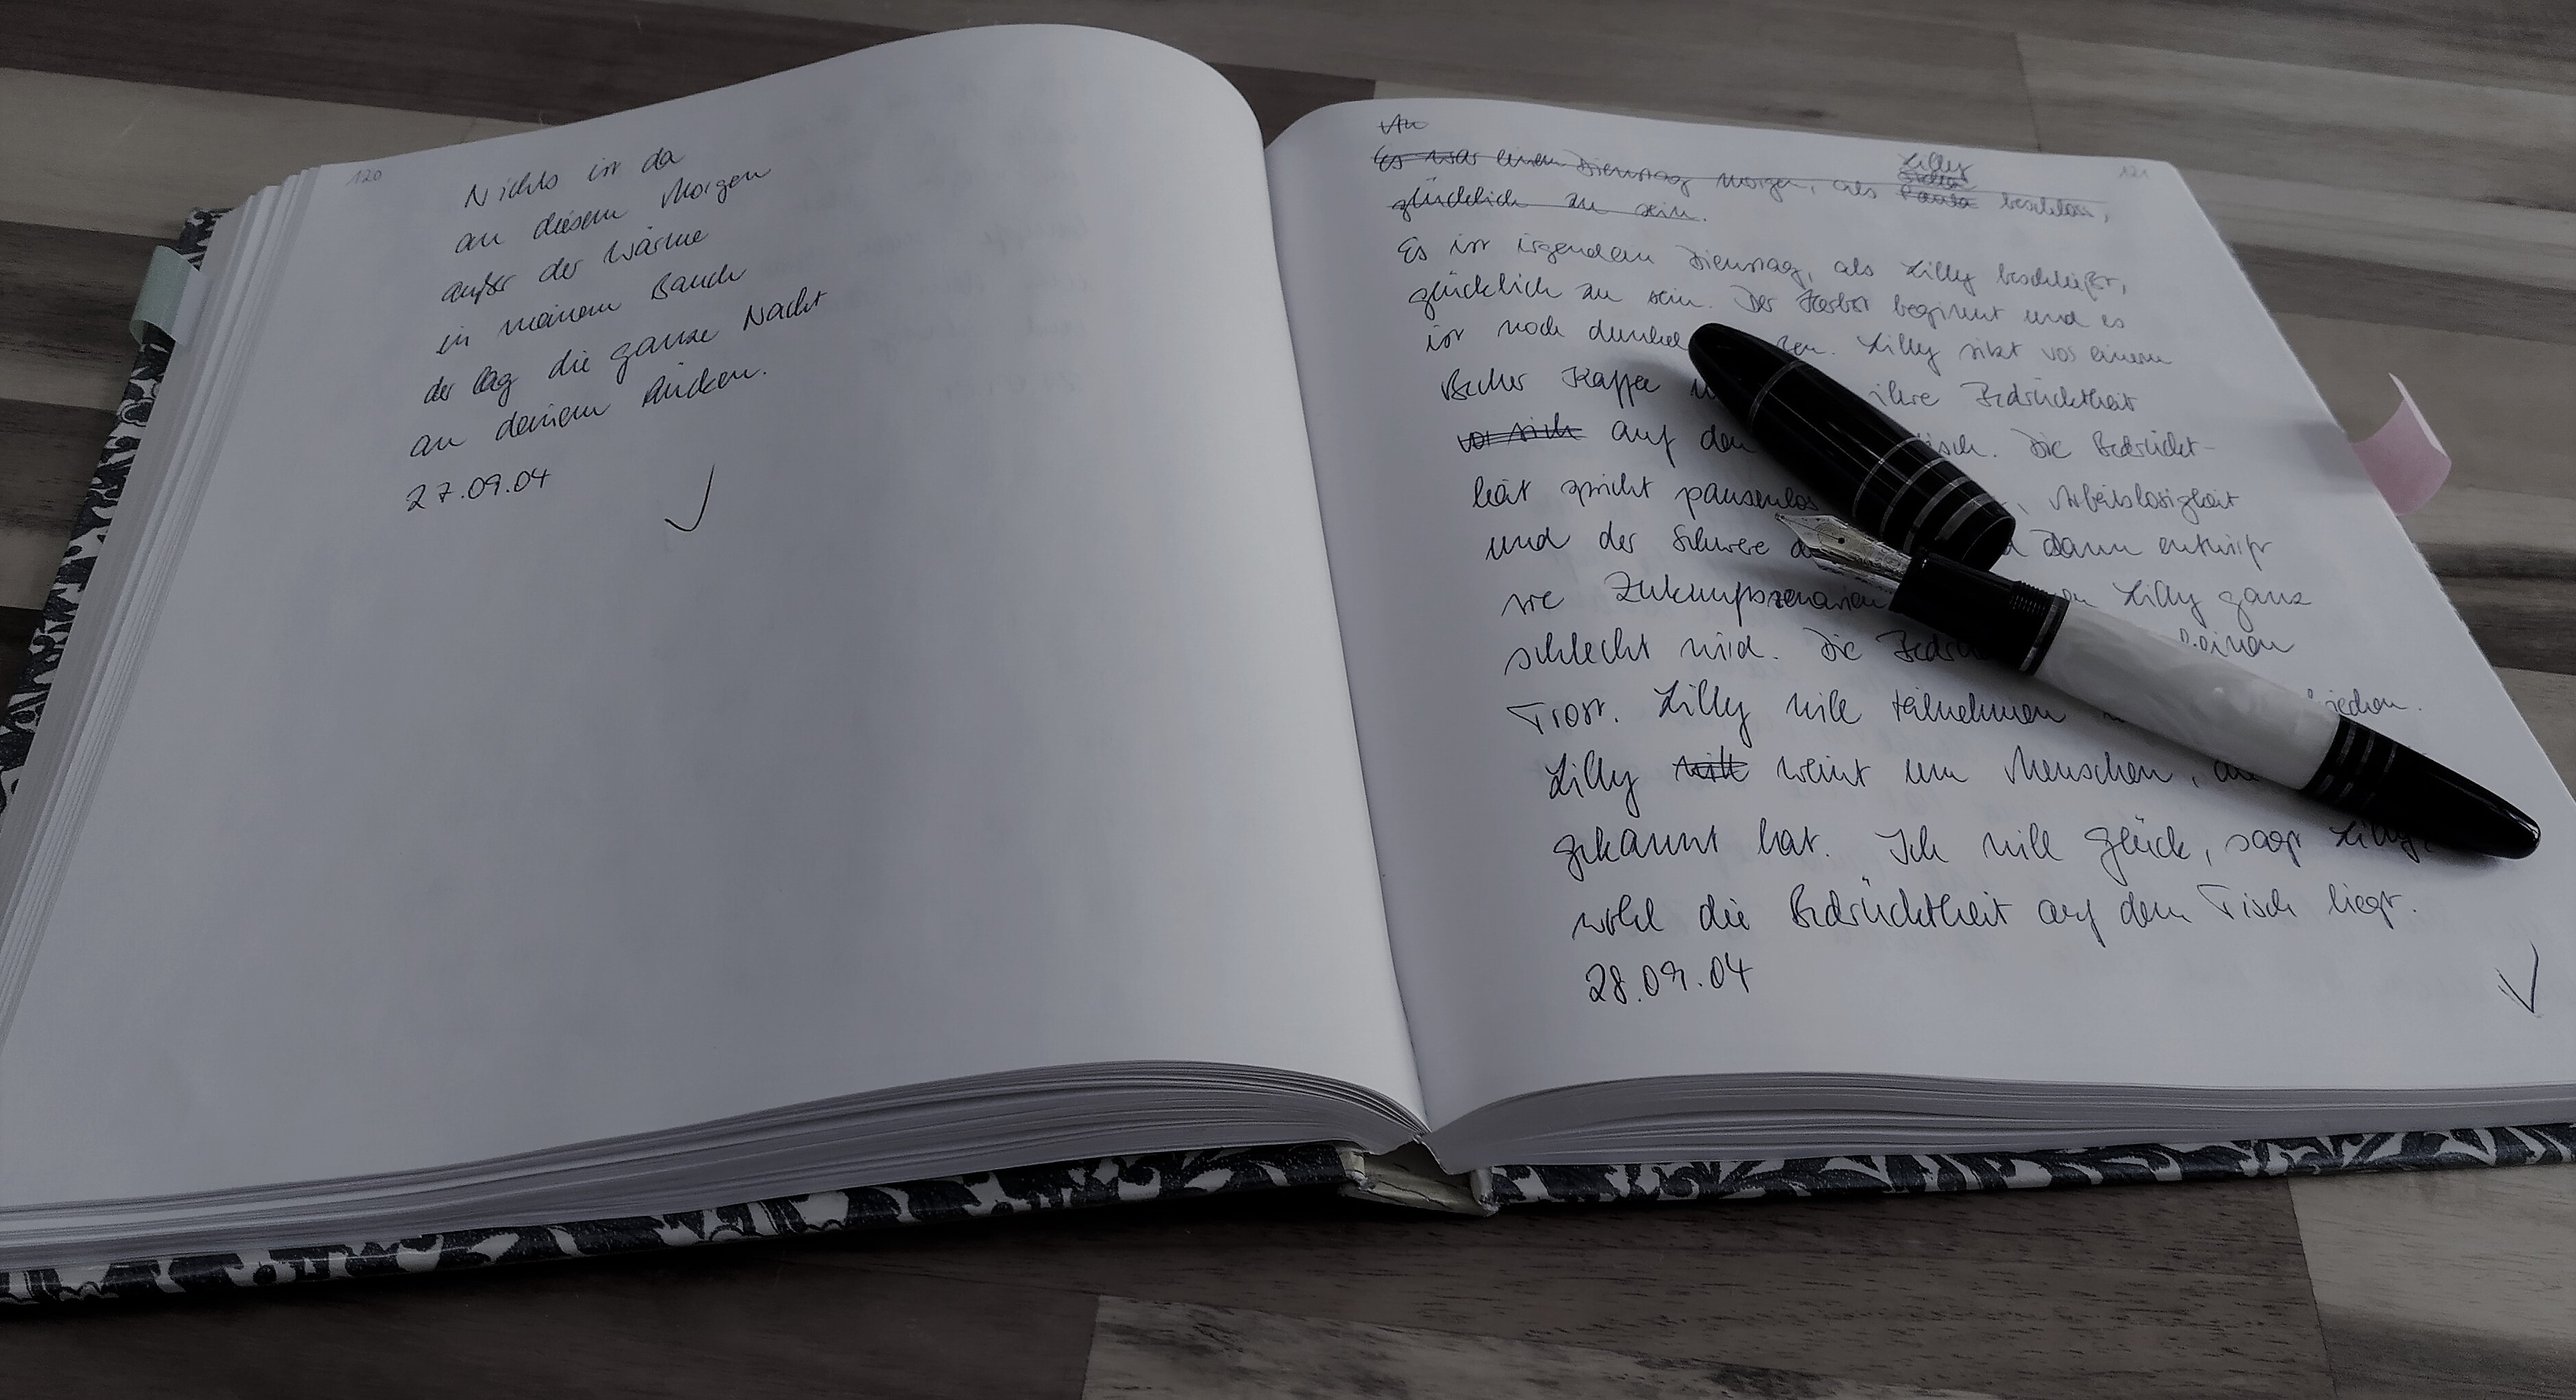 120
Nichts ist da
an diesem Morgen
außer der Wärme
in meinem Bauch
der lag die ganze Nacht
an deinem Rücken.
27.09.04
121
An
Lilly
Es war einem Dienstag morgen, als Paula beschloss,
glücklich zu sein.
Es ist irgendein Dienstag, als Lilly beschließt,
glücklich zu sein. Der Herbst beginnt und es
ist noch dunkel Lilly sitzt vor einem
Becher Kaffee ihre Bedrücktheit
vor sich auf den Die Bedrückt-
heit spricht pausenlos , Arbeitslosigkeit
und der Schwere dann entwirft
sie Zukunftsszenarien Lilly ganz
schlecht wird. Die einen
Trost. Lilly will teilnehmen
Lilly will weint um Menschen,
gekannt hat. Ich will Glück, sagt Lilly,
wohl die Bedrücktheit auf dem Tisch liegt.
28.09.04